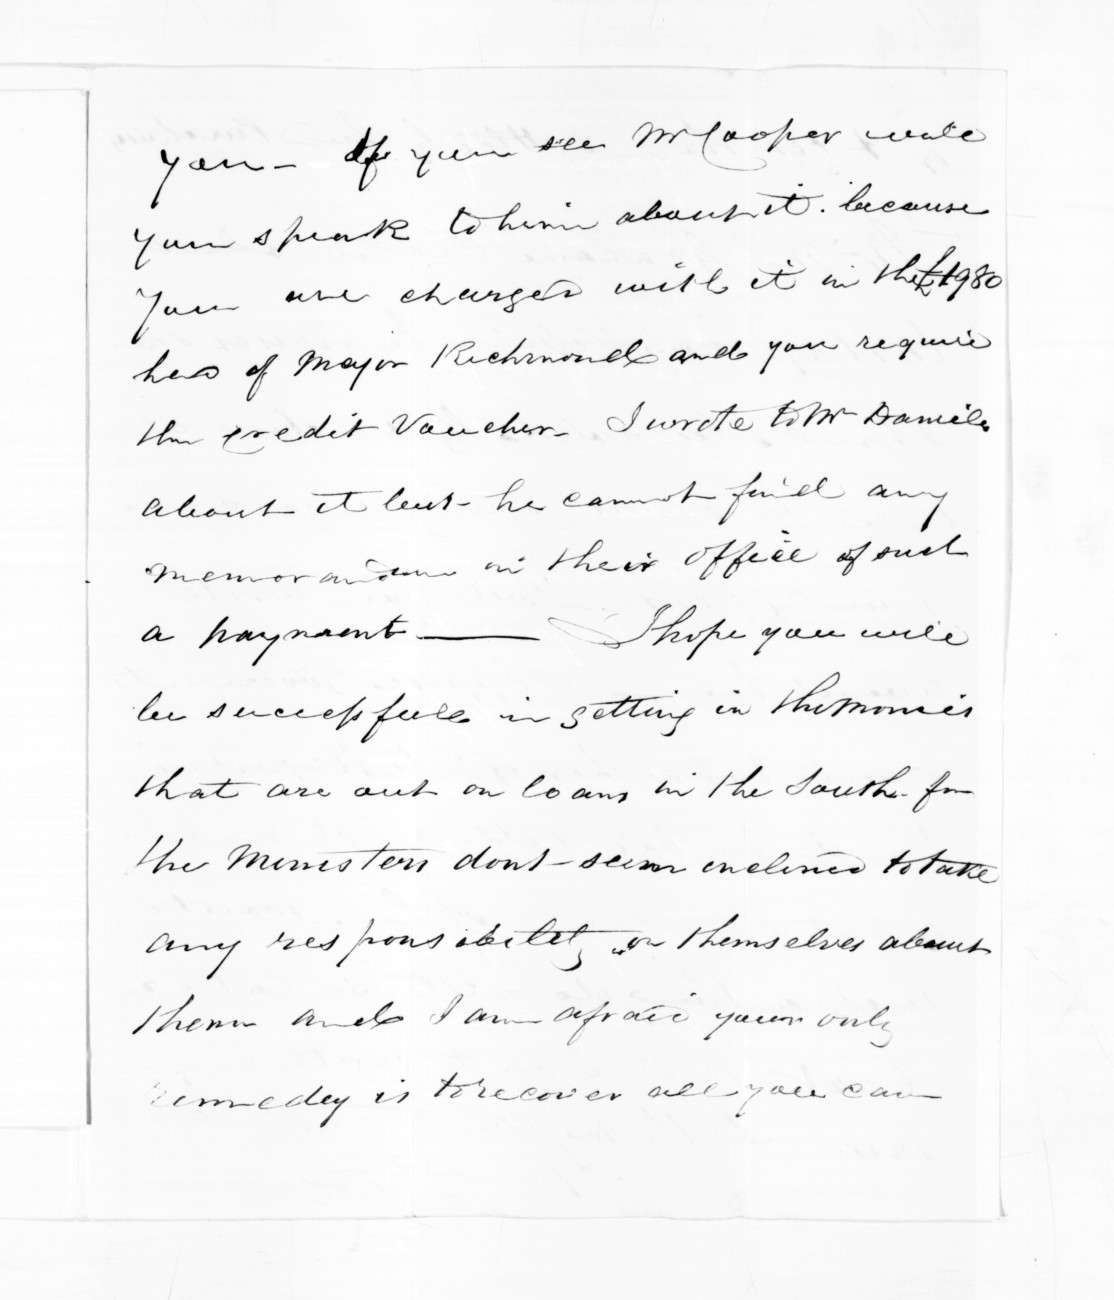 you - If you see Mr Cooper will
you speak to him about it. because
you are charged with it in the £1980
of Major Richmond and you require
the credit Voucher - I wrote to Mr Daniel
about it but he cannot find any
memorandum in their office of such
a payment —— I hope you will
be successful in getting in the monies
that are out on loans in the South - for
the Ministers dont seem inclined to take
any responsibility on themselves about
them and I am afraid your only
remedy is to recover all you can